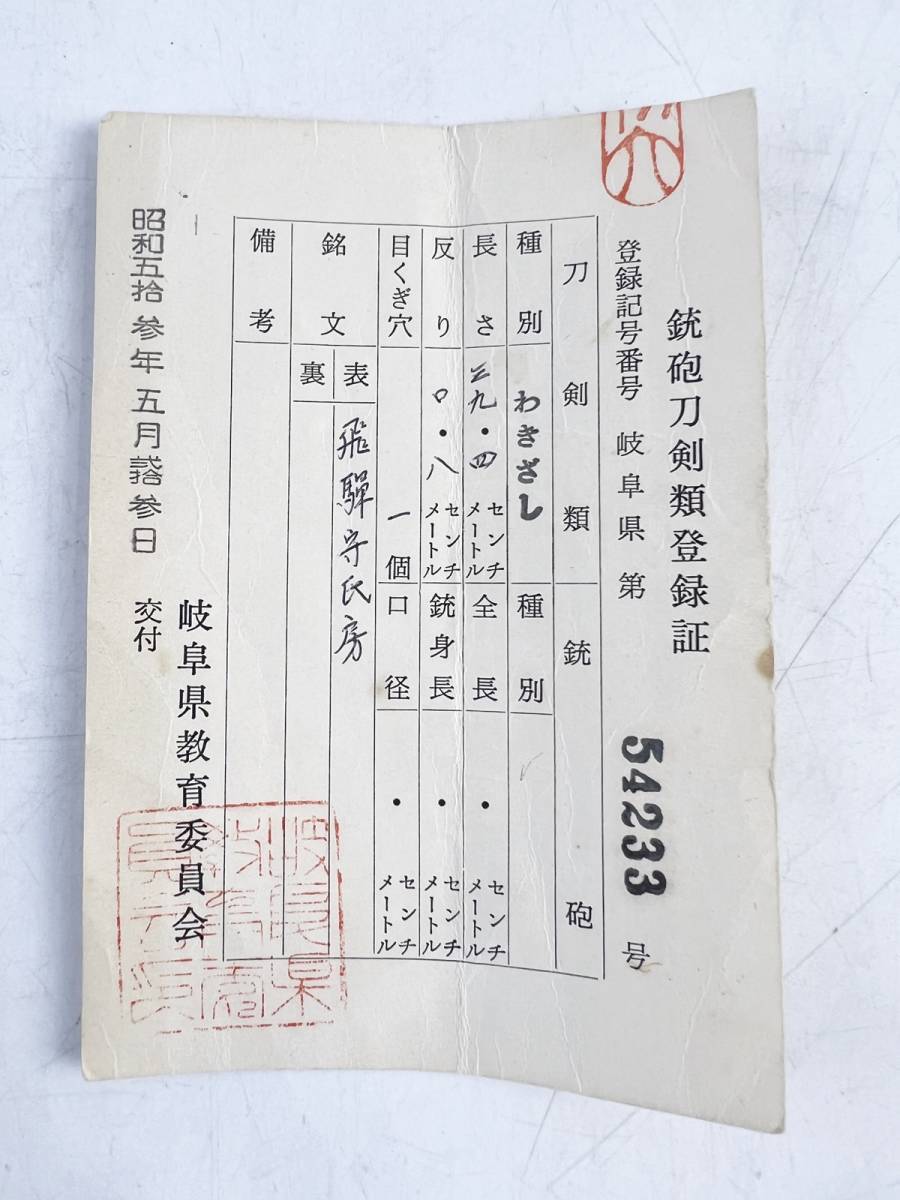 銃砲刀剣類登録証
登録記号番号 岐阜県 第 54233 号
刀剣類
銃砲
種別 わきざし
種別
長さ 三九・四 センチメートル
全長 ・ センチメートル
反り 〇・八 センチメートル
銃身長 ・ センチメートル
目くぎ穴 一個
口径 ・ センチメートル
銘文
表 飛騨守氏房
裏
備考
昭和五拾参年五月弐拾参日 交付
岐阜県教育委員会